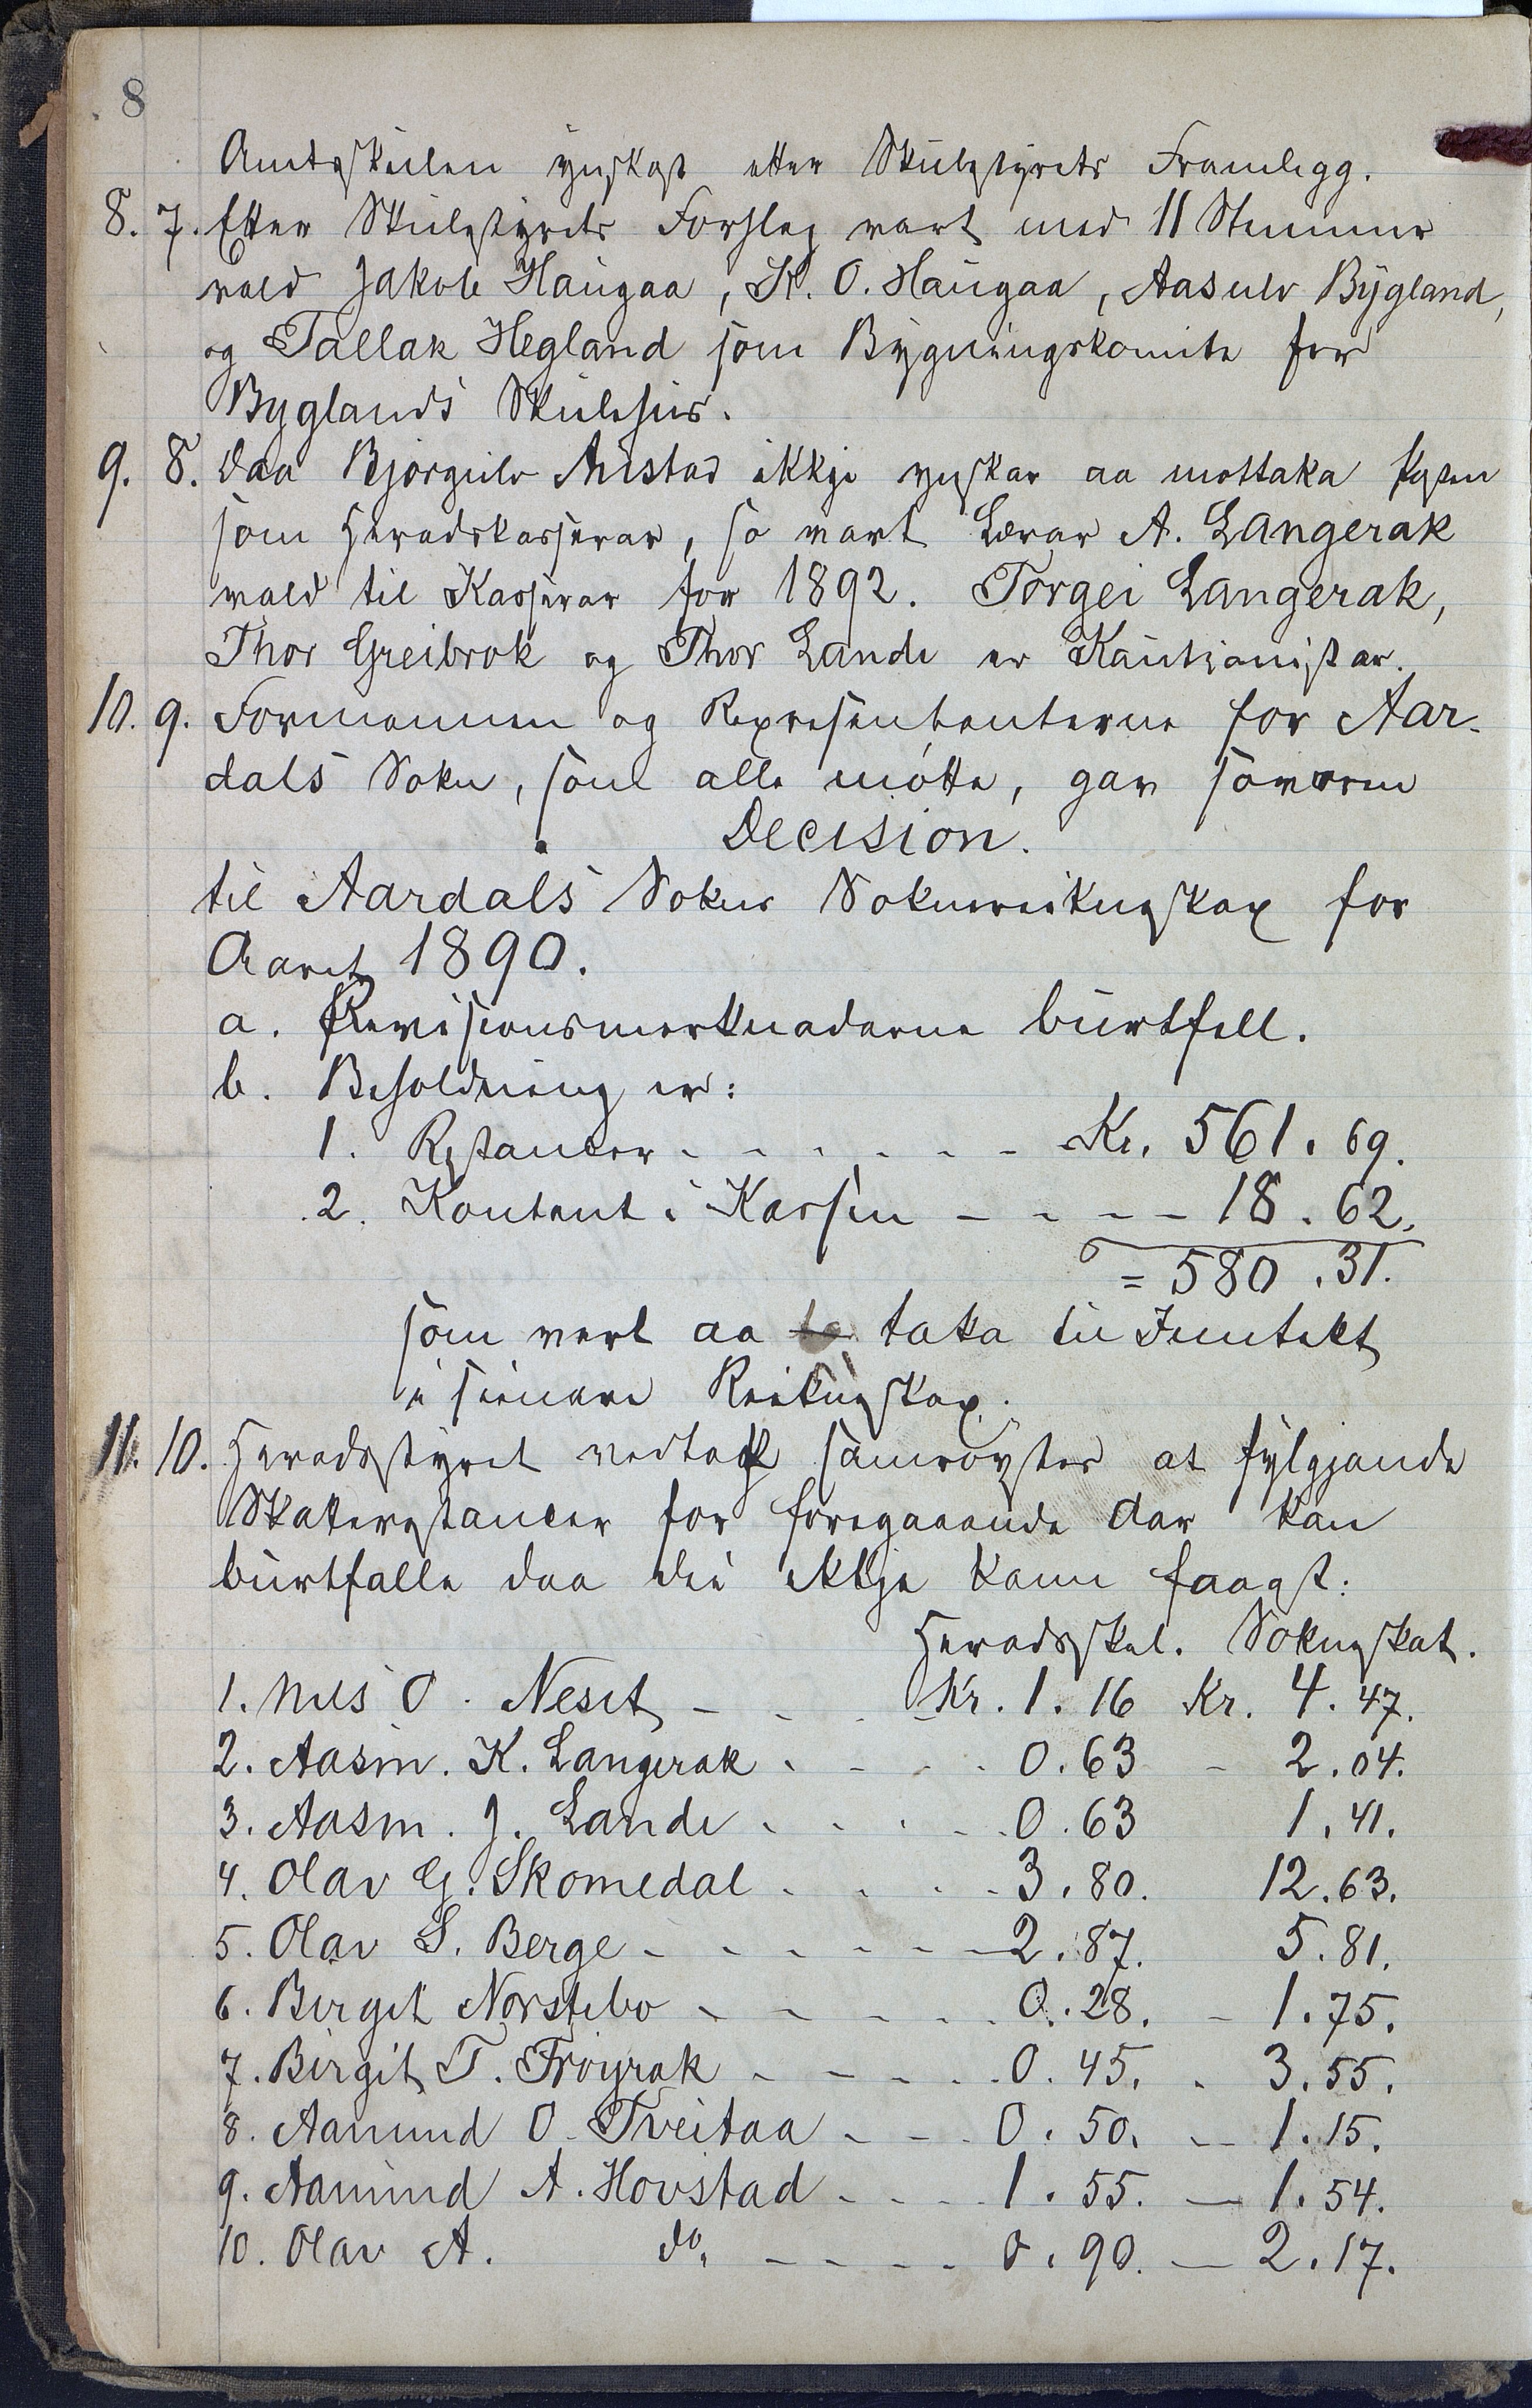 8
Amtsskulen ynskast etter Skulestyrets Framlegg.
8. 7. Etter Skulestyrets Forslag vart med 11 Stemmer
vald Jakob Haugaa, K. O. Haugaa, Aasulv Bygland,
og Tallak Hegland som Bygningskomite for
Byglands Skulehus.
9. 8. Daa Bjorgulv Austad ikkje ynskar aa mottaka Posten
som Heradskasserar, so vart Lærar A. Langerak
vald til Kasserar for 1892. Torgei Langerak,
Thor Greibrok og Thor Lande er Kautionistar.
10. 9. Formannen og Representanterne for Aar-
dals Sokn, som alle møtte, gav saavoren
Decision.
til Aardals Sokns Soknereikneskap for
Aaret 1890.
a. Revisionsmerknadarne burtfell.
b. Behøldning er:
1. Restancer - - - - - - Kr. 561. 69.
2. Kontant i Kassen - - - - 18. 62.
= 580. 31.
som vert aa ta taka til Inntekt
i seinare Reikneskap.
11. 10. Heradsstyret vedtok samrøystes at fylgjande
Skaterestancer for foregaaande Aar kan
burtfalla daa dei ikkje kann faaast:
Heradsskat. Sokneskat.
1. Nils O. Neset - - - Kr. 1. 16 Kr. 4. 47.
2. Aasm. K. Langerak - - - - 0. 63 - 2. 04.
3. Aasm. J. Lande - - - - - 0. 63 1. 41.
4. Olav G. Skomedal - - - - 3. 80. 12. 63.
5. Olav S. Berge - - - - - - 2. 87. 5. 81.
6. Birgit Norstebo - - - - - 0. 28. - 1. 75.
7. Birgit T. Frøyrak - - - - - 0. 45. - 3. 55.
8. Aanund O. Tveitaa - - - 0. 50. - 1. 15.
9. Aanund A. Hovstad - - - - 1. 55. - 1. 54.
10. Olav A. do. - - - - 0. 90. - 2. 17.